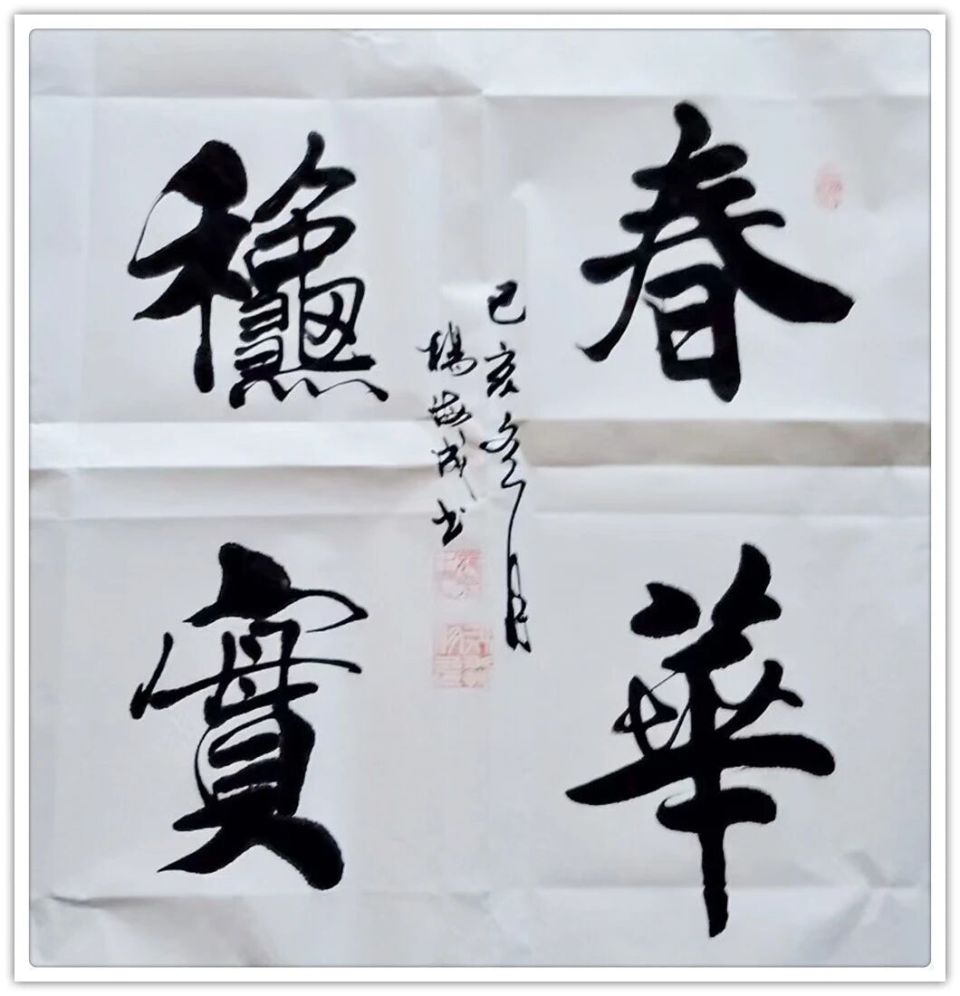 春華
龝實
己亥冬月
楊海成书